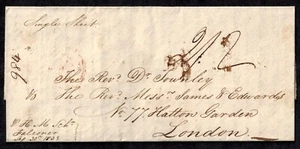 Single Sheet
984
2/2
The Revd Dr Townley
The Revd Messrs James & Edwards
No 77 Hatton Garden
London
H. M. Schr